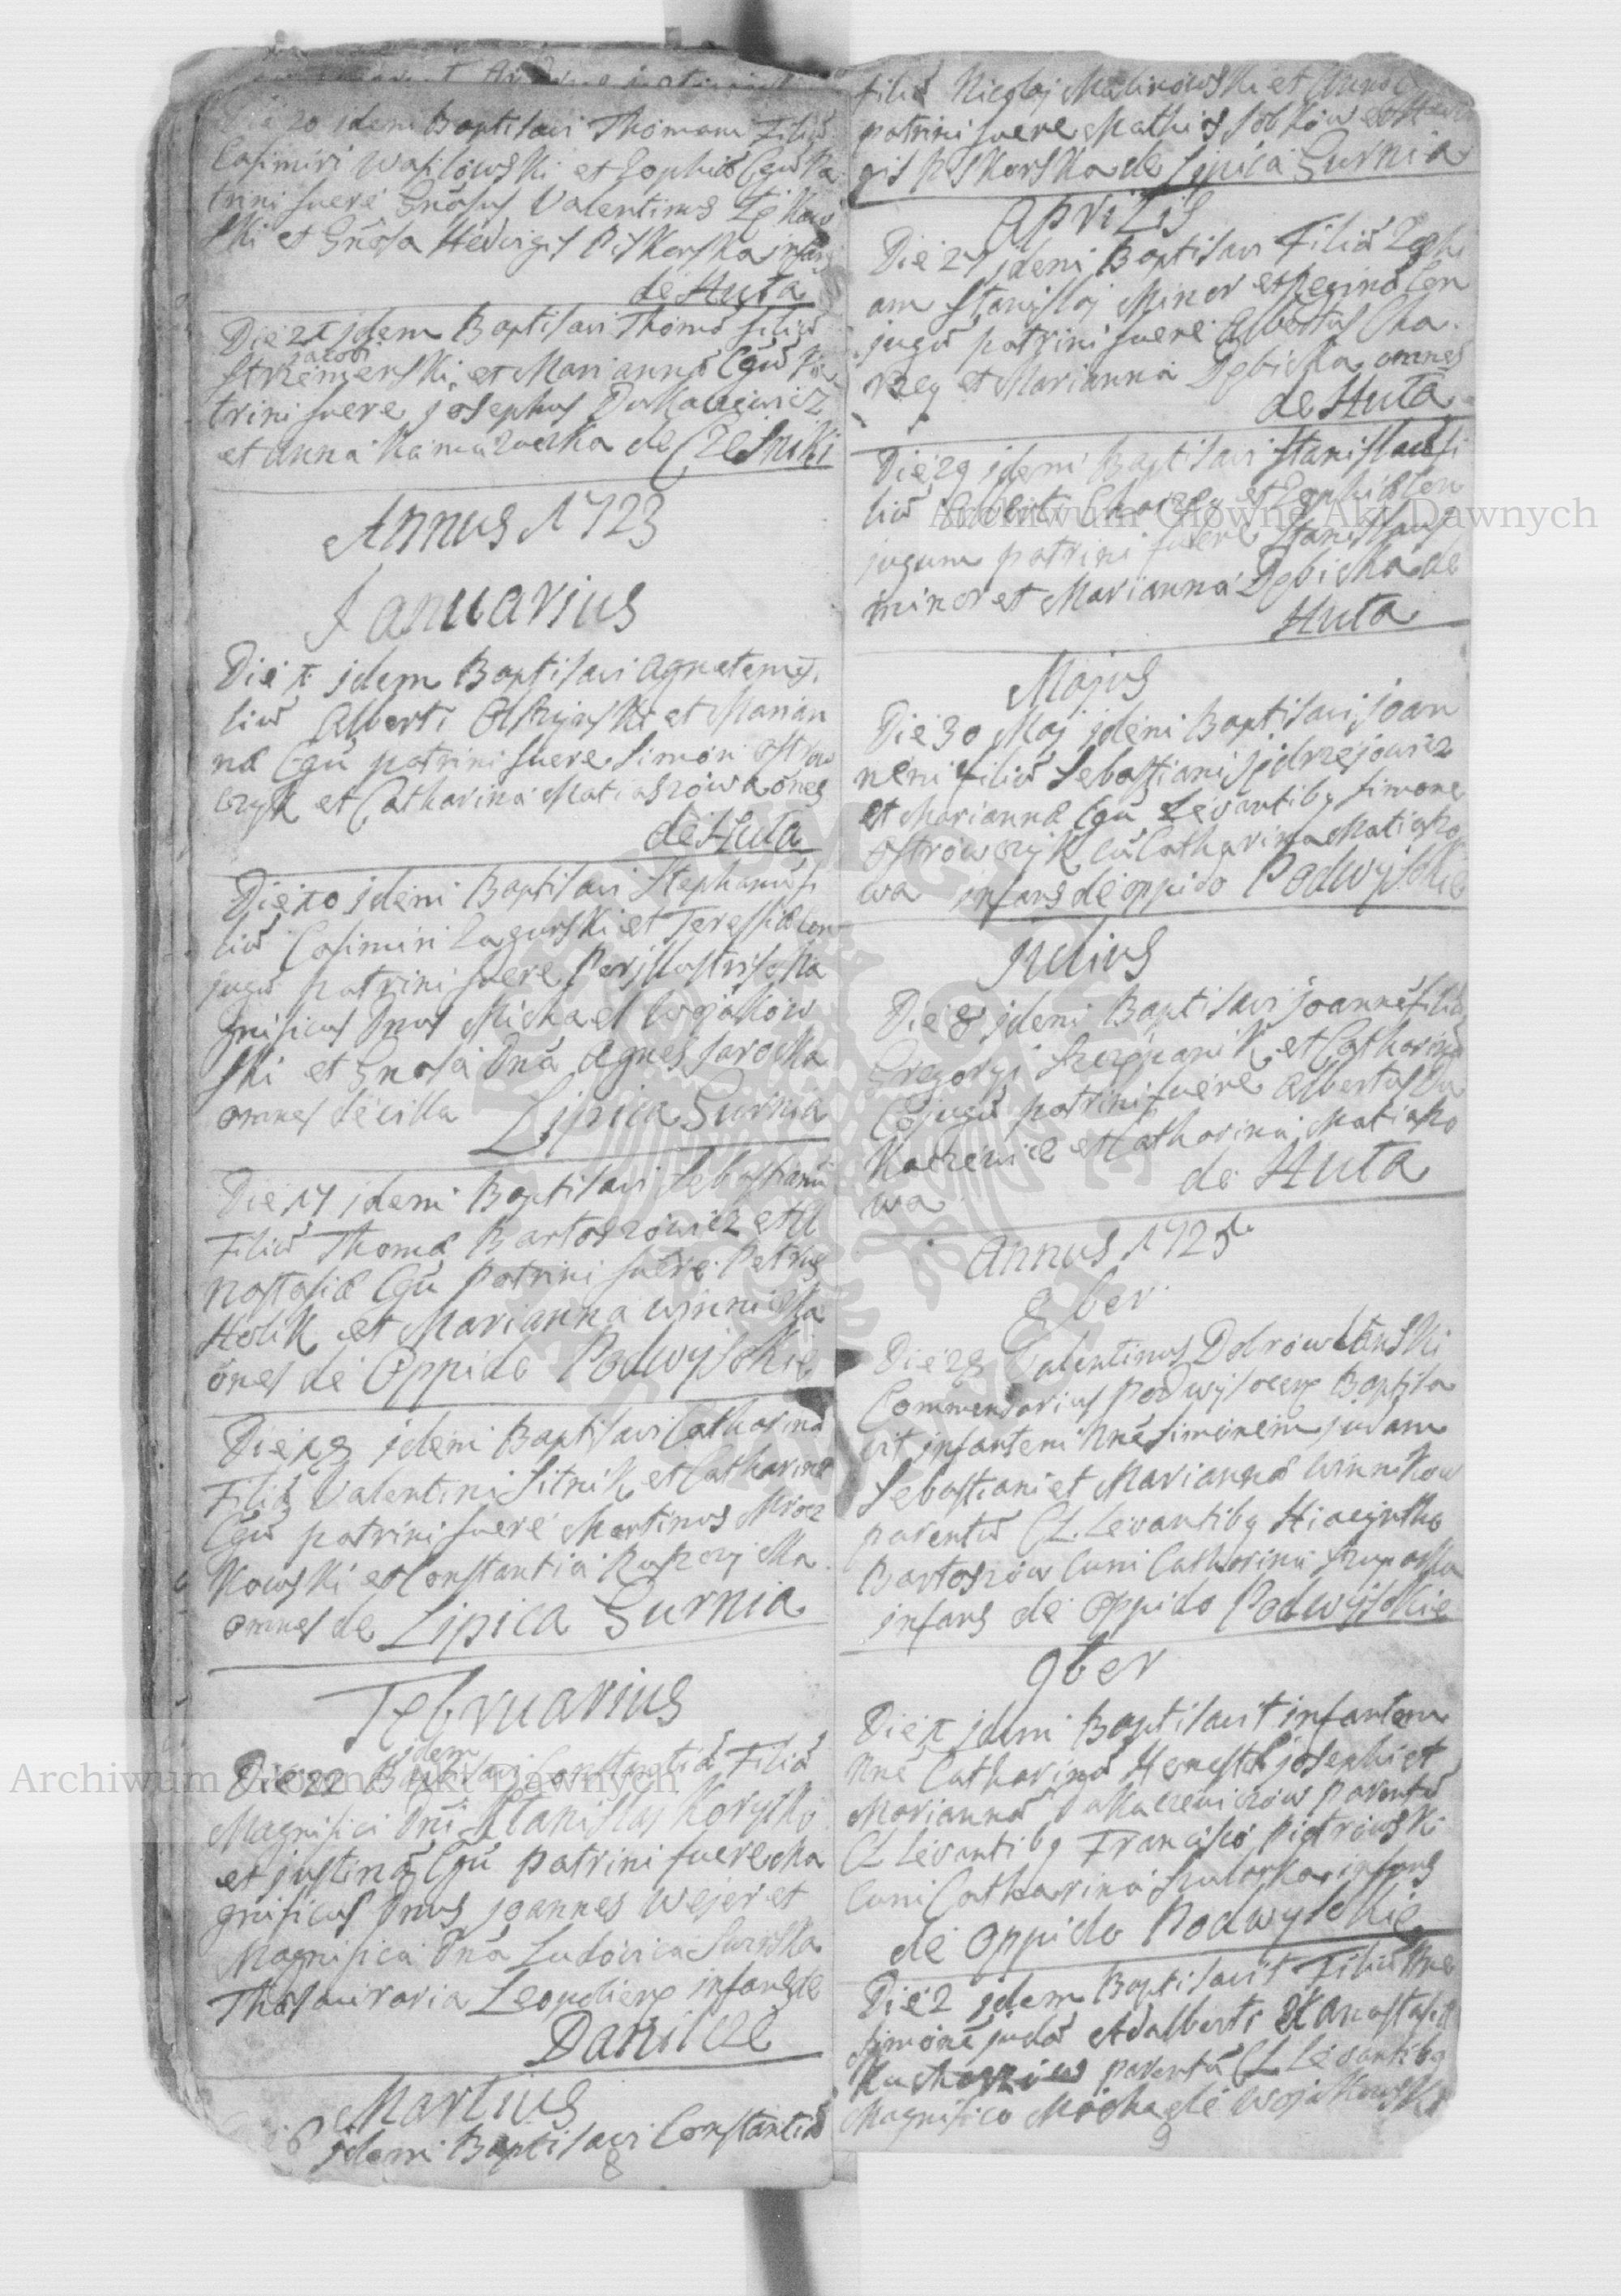 20 idem Baptisavi Thomam Filiū
Casimiri Wasilowski et Sophiæ Cgū Pa
trini fuere Gnōsus Valentinus
ski et Gnōsa Hedvigis Piskorska infans
de Huta
Die 21 jdem Baptisavi Thomā filiū
jacobi
Strzemenski et Mariannæ Cgū Pa
trini fuere josephus Dukaciewicz
et Anna de Czesniki
Annus 1723
Januarius
Die 1 jdem Baptisavi Agnetem Fi
liā Alberti et Marian
næ Cgū patrini fuere Simon Ostrow
czyk et Catharina Matiaszowa ōnes
de Huta
Die 10 jdem Baptisavi Stephanū fi
liū Casimiri Zagurski et Teressiæ Con
jugū patrini fuere Perjllustris Ma
gnificus Dnus Michael Wojakow
ski et Gnosa Dna Agnes Jarocka
omnes de villa Lipica Gurnia
Die 17 jdem Baptisavi Sebastianū
Filiū Thomæ Bartoszowicz et A
nastasiæ Cgū Patrini fuere Petrus
Holik et Marianna Winnicka
ōnes de Oppido Podwysokie
Die 18 jdem Baptisavi Catharinā
Filiā Valentini Sitnik et Catharinæ
Cgū patrini fuere Martinus Mrocz
kowski et Constantia
omnes de Lipica Gurnia
Februarius
jdem
Die 22 Baptisavi Constantiā Filiā
Magnifici Dni Stanislaj Korytko
et justinæ Cgū patrini fuere Ma
gnificus Dnus joannes Wejer et
Magnifica Dna Ludovica
Thesauraria Leopolien infans de
Danilcze
Martius
6 jdem Baptisavi Constantiā
8
filiā Nicolaj Malinowski et Annæ
patrini fuere Mathias Sobkow et Hedvi
gis Piskorska de Lipica Gurnia
Aprilis
Die 27 jdem Baptisavi Filiā Zophi
am Stanislaj Minor et Reginæ Con
jugū patrini fuere Albertus Cha
rzeg et Marianna Dębicka omnes
de Huta
Die 29 jdem Baptisavi Stanislaū fi
liū Alberti et Zophiæ Con
jugum patrini fuere Stanislaus
minor et Marianna Dębicka de
Huta
Majus
Die 30 Maj jdem Baptisavi joan
nem filiū Sebastiani jędrzejowicz
et Mariannæ Cgū Levantibq Simone
Ostrowczyk cū Catharina Matiaszo
wa infans de oppido Podwysokie
Julius
Die 8 jdem Baptisavi joannē filiū
Gregorgi Szczepanik et Catharinæ
Cojugū patrini fuere Albertus Du
kaczewicz et Catharina Matiaszo
wa de Huta
Annus 1725
8ber
Die 28 Valentinus Dobrowlanski
Commendarius Podwysocen Baptisa
vit infantem Nnē Simonem judam
Sebastiani et Mariannæ Winnikow
parentū CL Levantibq Hiacyntho
Bartoszow cum Catharina
infans de oppido Podwysokie
9ber
Die 1 jdem Baptisavit infantem
Nnē Catharinā Honesti josephi et
Mariannæ Dukaczewiczow parentū
CL Levantibq Francisco Piotrowski
cum Catharina infans
de Oppido Podwysokie
Die 2 jdem Baptisavit Filiū Nne
Simonē judā Adalberti et Anastasiæ
parentū CL Levantibq
Magnifico Michaele Wojakowski
9
Archiwum Główne Akt Dawnych
Archiwum Główne Akt Dawnych